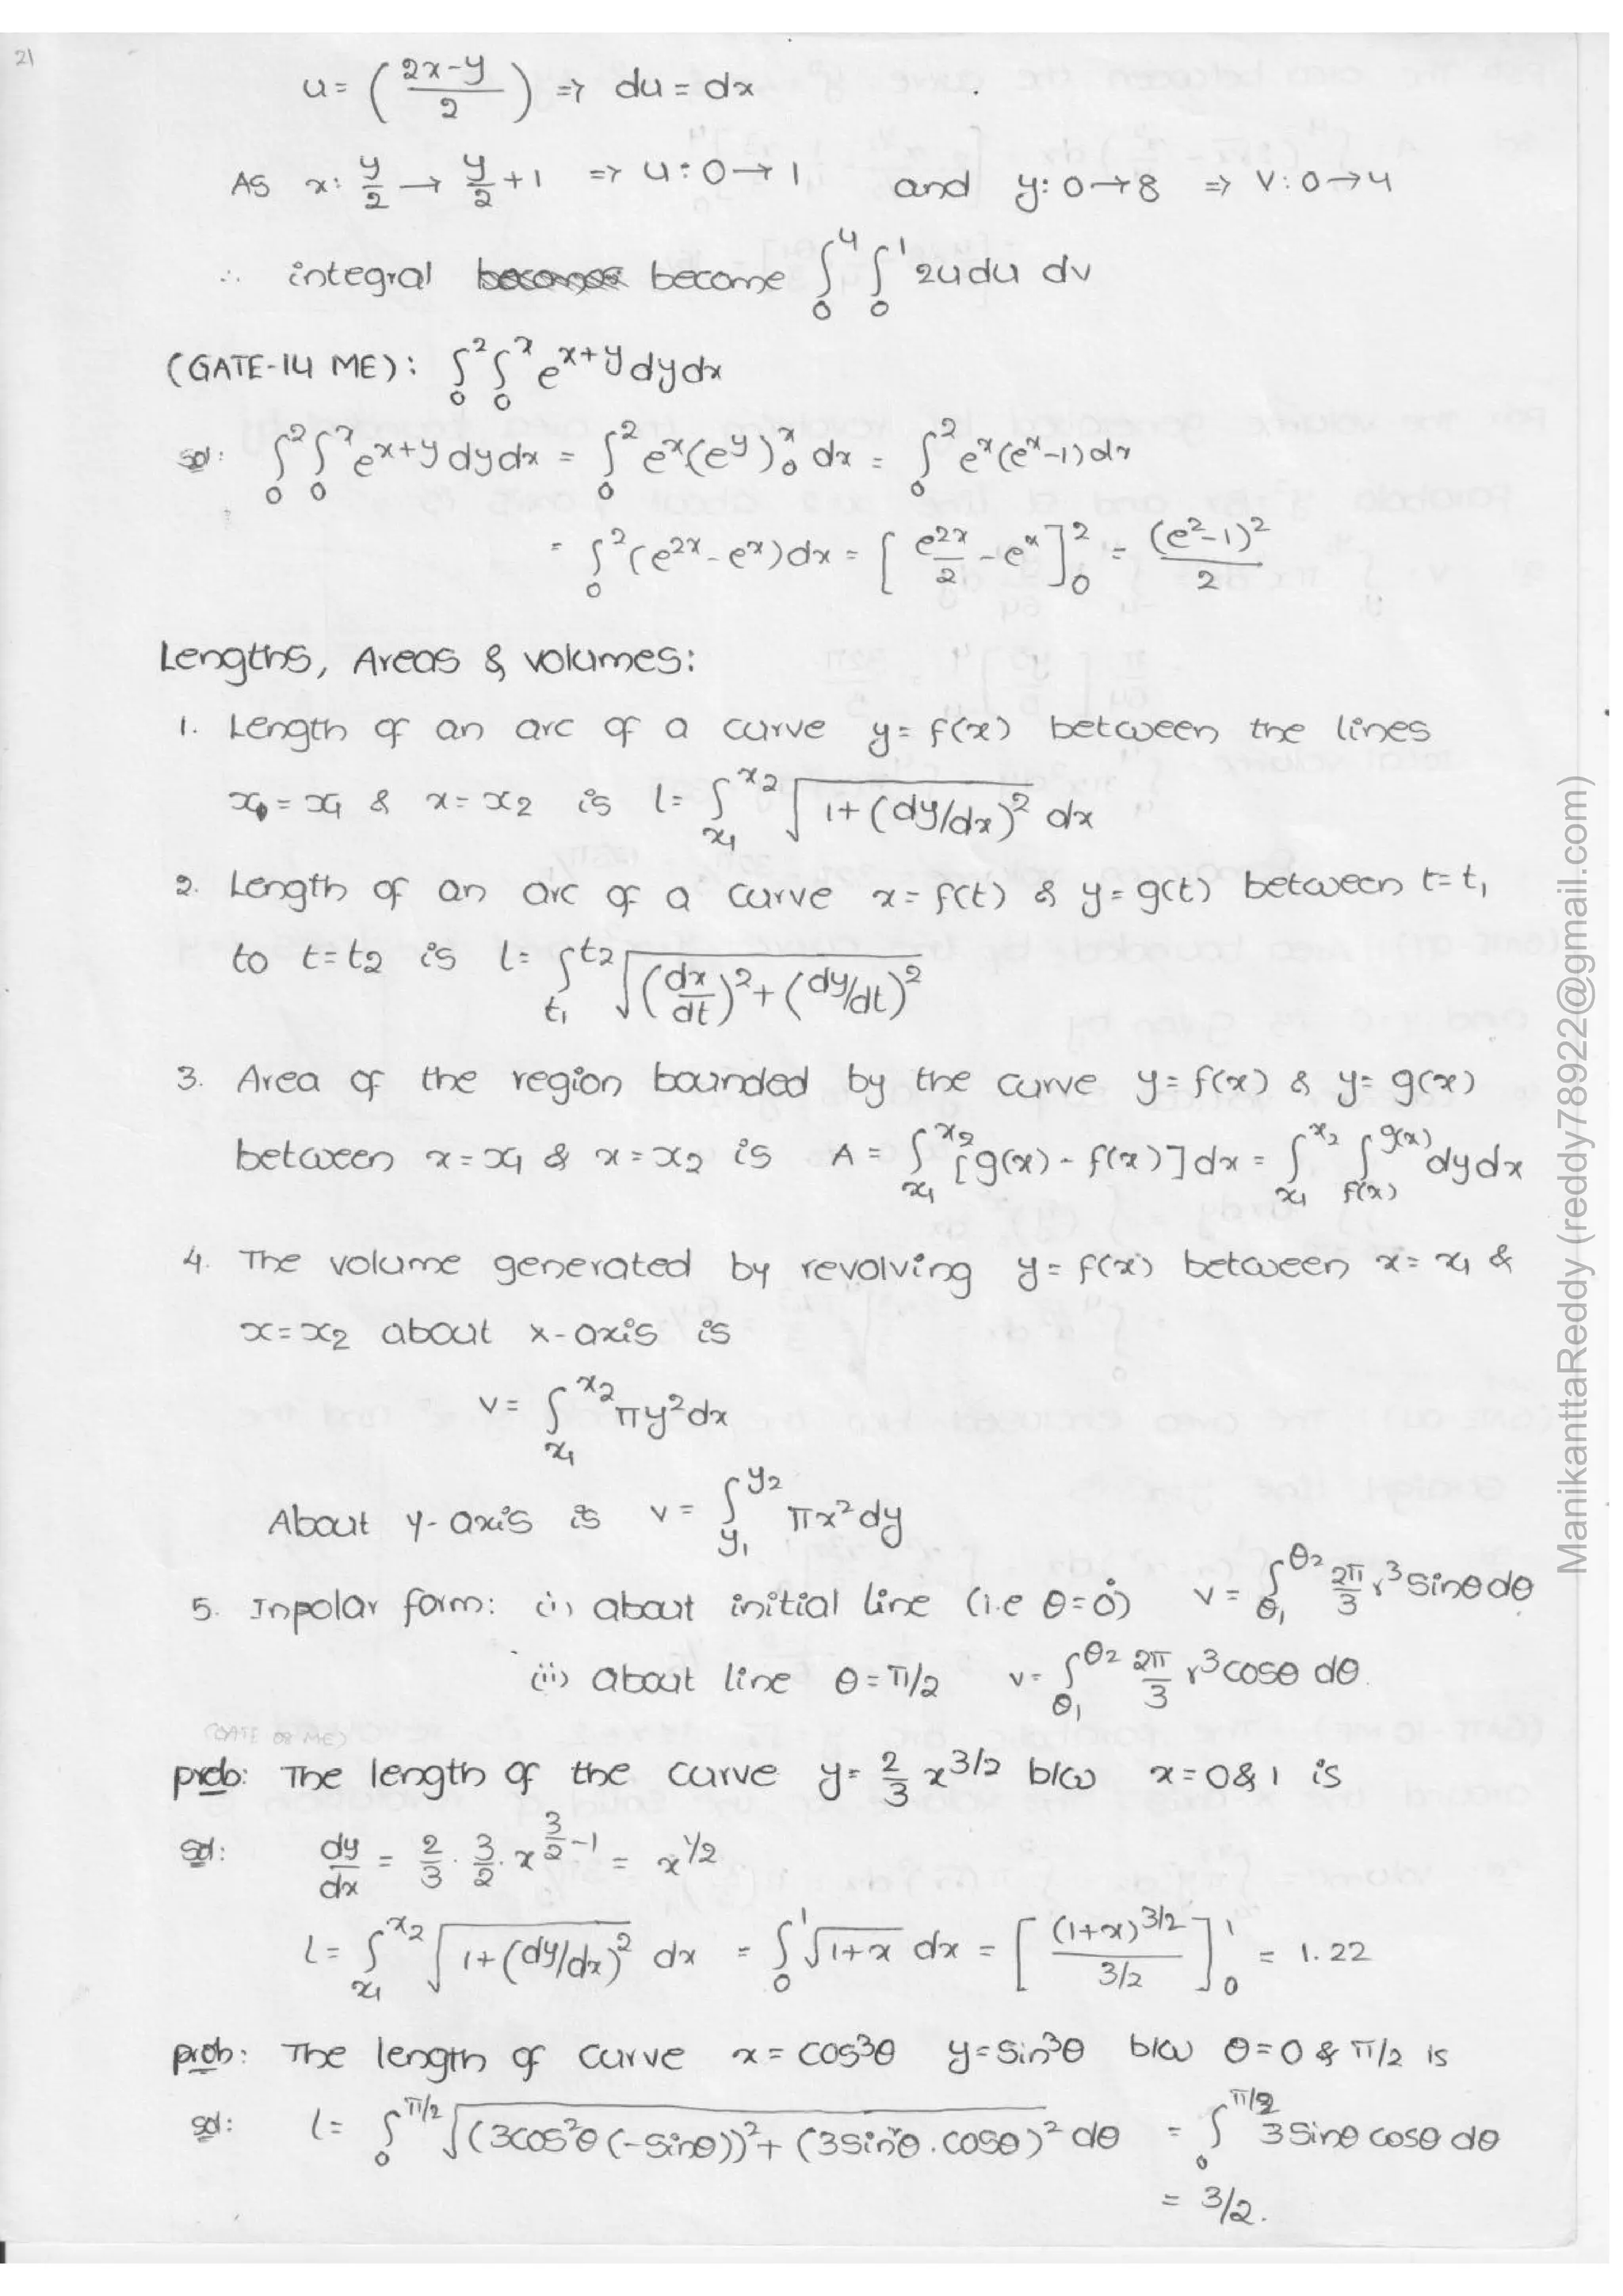 21
u = ( (2x-y)/2 ) => du = dx
As x: y/2 → y/2 + 1 => u: 0 → 1 and y: 0 → 8 => v: 0 → 4
∴ integral become ∫₀⁴ ∫₀¹ 2u du dv
(GATE-14 ME): ∫₀² ∫₀ˣ e^(x+y) dy dx
sol: ∫₀² ∫₀ˣ e^(x+y) dy dx = ∫₀² eˣ (e^y)₀ˣ dx = ∫₀² eˣ (eˣ - 1) dx
= ∫₀² (e^(2x) - eˣ) dx = [ e^(2x)/2 - eˣ ]₀² = (e² - 1)²/2
Lengths, Areas & volumes:
1. Length of an arc of a curve y = f(x) between the lines
x = x₁ & x = x₂ is l = ∫_(x₁)^(x₂) √(1 + (dy/dx)²) dx
2. Length of an arc of a curve x = f(t) & y = g(t) between t = t₁
to t = t₂ is l = ∫_(t₁)^(t₂) √((dx/dt)² + (dy/dt)²)
3. Area of the region bounded by the curve y = f(x) & y = g(x)
between x = x₁ & x = x₂ is A = ∫_(x₁)^(x₂) [g(x) - f(x)] dx = ∫_(x₁)^(x₂) ∫_(f(x))^(g(x)) dy dx
4. The volume generated by revolving y = f(x) between x = x₁ &
x = x₂ about x-axis is
v = ∫_(x₁)^(x₂) πy² dx
About y-axis is v = ∫_(y₁)^(y₂) πx² dy
5. Inpolar form: (i) about initial line (i.e θ = 0°) v = ∫_(θ₁)^(θ₂) 2π/3 r³ sinθ dθ
(ii) about line θ = π/2 v = ∫_(θ₁)^(θ₂) 2π/3 r³ cosθ dθ.
(GATE 08 ME)
prob: The length of the curve y = 2/3 x^(3/2) b/w x = 0 & 1 is
sol: dy/dx = 2/3 · 3/2 · x^(3/2 - 1) = x^(1/2)
l = ∫_(x₁)^(x₂) √(1 + (dy/dx)²) dx = ∫₀¹ √(1+x) dx = [ (1+x)^(3/2) / (3/2) ]₀¹ = 1.22
prob: The length of curve x = cos³θ y = sin³θ b/w θ = 0 & π/2 is
sol: l = ∫₀^(π/2) √((3cos²θ (-sinθ))² + (3sin²θ · cosθ)²) dθ = ∫₀^(π/2) 3 sinθ cosθ dθ
= 3/2.
ManikanttaReddy (reddy78922@gmail.com)